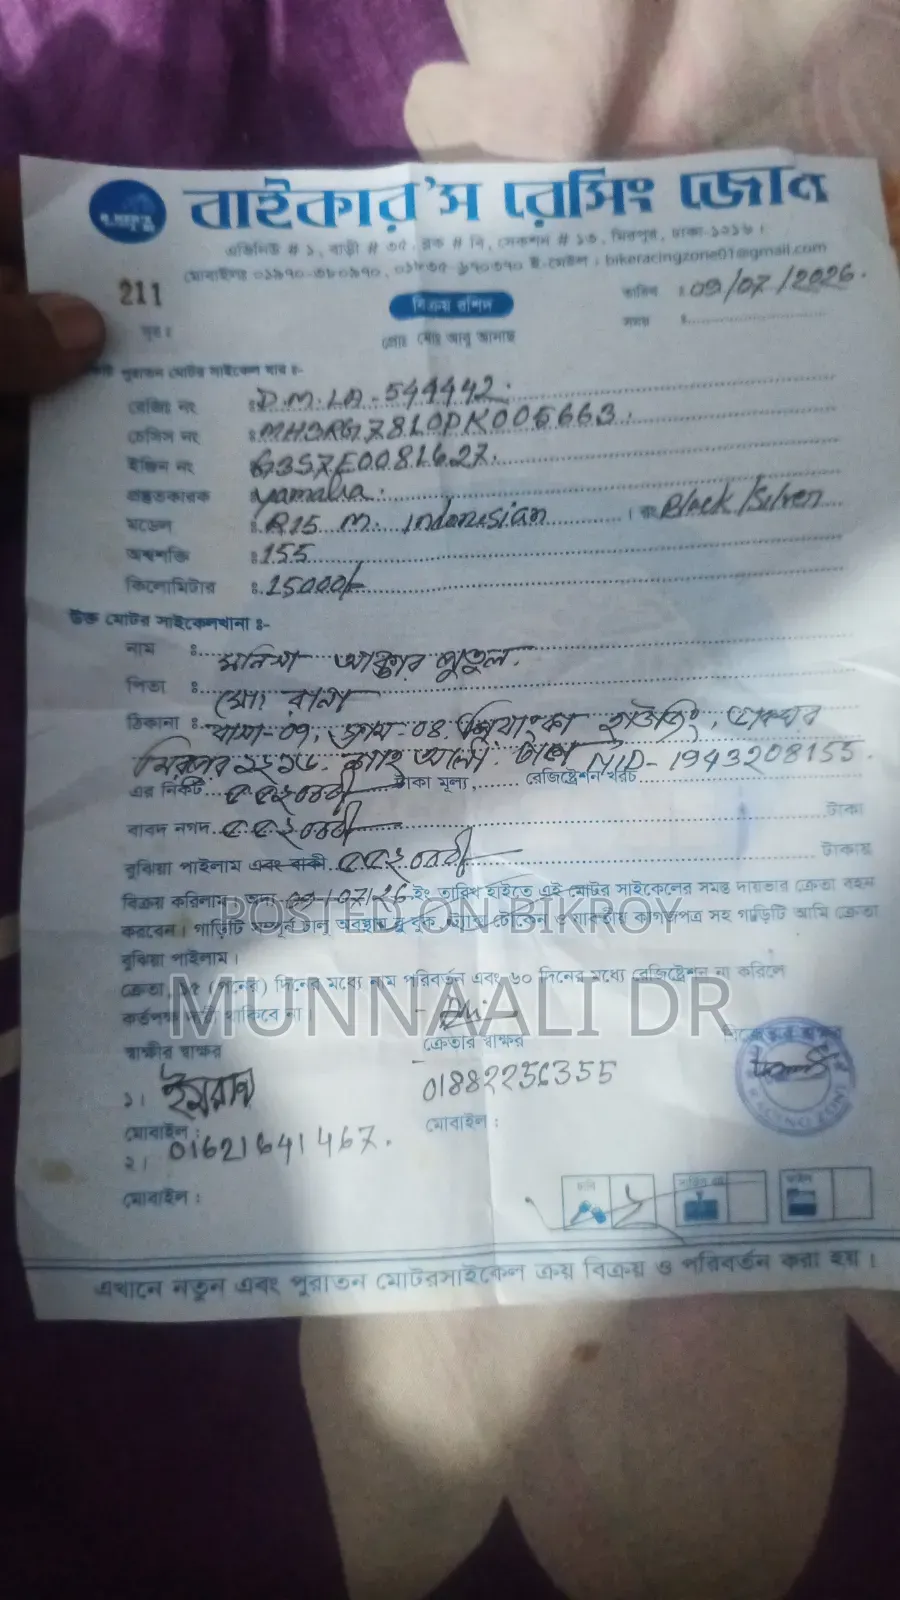 বাইকার'স রেসিং জোন
এভিনিউ # ১, বাড়ী # ৩৫, ব্লক # বি, সেকশন # ১৩, মিরপুর, ঢাকা-১২১৬।
ই-মেইল : bikeracingzone01@gmail.com
211
বিক্রয় রশিদ
তারিখ : 09/07/2026.
সময় :
পুরাতন মোটর সাইকেল যার :-
রেজিঃ নং : D.M.LA-544442.
চেসিস নং : MH3RG7810PK005663.
ইঞ্জিন নং : G3S7E0081627.
প্রস্তুতকারক : Yamaha.
মডেল : R15 M. Indonesian । রং Black/Silver
অশ্বশক্তি : 155
কিলোমিটার : 15000/-
উক্ত মোটর সাইকেলখানা :-
নাম : মনিষা আক্তার পুতুল.
পিতা : মোঃ রানা
ঠিকানা : বাসা-09, রোড-04, প্রিয়াংকা হাউজিং, ডাকঘর
মিরপুর ১২১৬. শাহ আলী. ঢাকা NID-1943208155.
এর নিকট ৫৫২০০০/- টাকা মূল্য, রেজিষ্ট্রেশন খরচ
বাবদ নগদ ৫৫২০০০/- টাকা
বুঝিয়া পাইলাম এবং বাকী ৫৫২০০০/- টাকায়
বিক্রয় করিলাম। অদ্য 09/07/26 ইং তারিখ হইতে এই মোটর সাইকেলের সমস্ত দায়ভার ক্রেতা বহন
করবেন। গাড়িটি সম্পূর্ন চালু অবস্থায় ব্লু বুক, ট্যাক্স টোকেন ও যাবতীয় কাগজপত্র সহ গাড়িটি আমি ক্রেতা
বুঝিয়া পাইলাম।
POSTED ON BIKROY
ক্রেতা, ১৫ (পনের) দিনের মধ্যে নাম পরিবর্তন এবং ৬০ দিনের মধ্যে রেজিষ্ট্রেশন না করিলে
কর্তৃপক্ষ দায়ী থাকিবে না।
MUNNAALI DR
স্বাক্ষীর স্বাক্ষর
ক্রেতার স্বাক্ষর
বিক্রেতার স্বাক্ষর
১। ইমরান
01882256355
মোবাইল : 01621641467.
মোবাইল :
২।
মোবাইল :
এখানে নতুন এবং পুরাতন মোটরসাইকেল ক্রয় বিক্রয় ও পরিবর্তন করা হয়।